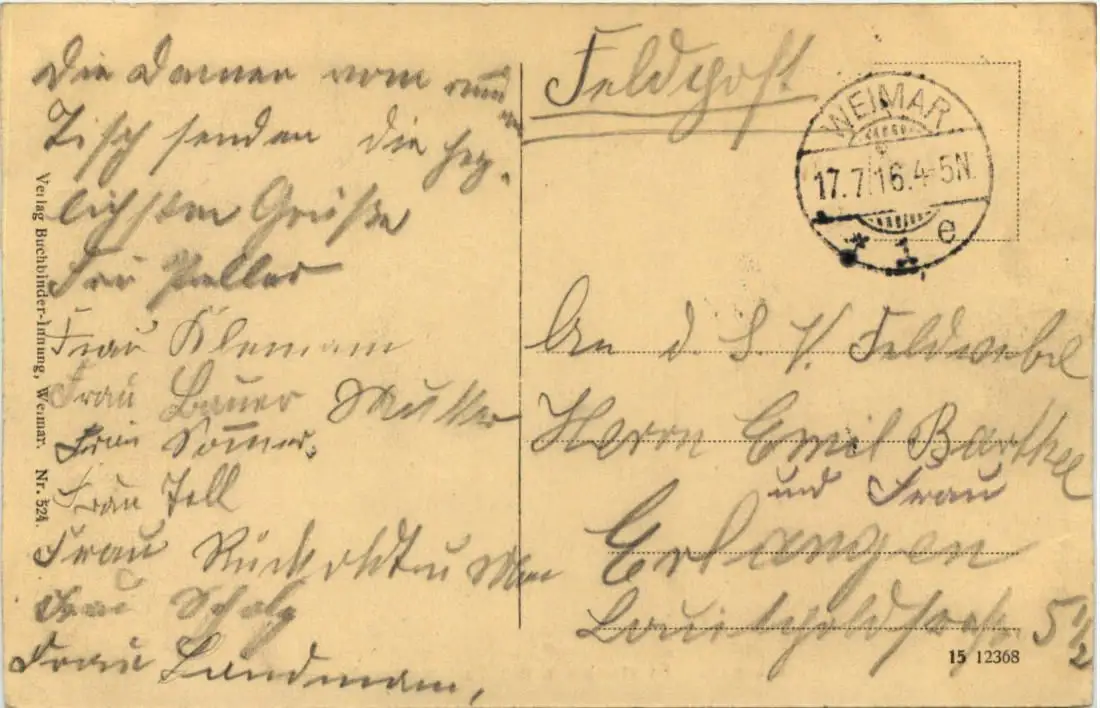 Die Damen vom rund
Tisch senden die herz-
lichsten Grüße
Frau
Frau Klemam
Frau Bauer Mutter
Frau Sommer,
Frau Tell
Frau Rückoldt u
Frau Scholz
Frau Landmann,
Verlag Buchbinder-Innung, Weimar. Nr. 524.
Feldpost
WEIMAR
17.7.16.4-5N.
* 1 e
An d. S. V. Feldwebel
Herrn Emil Barthel
und Frau
Erlangen
5 1/2
15 12368